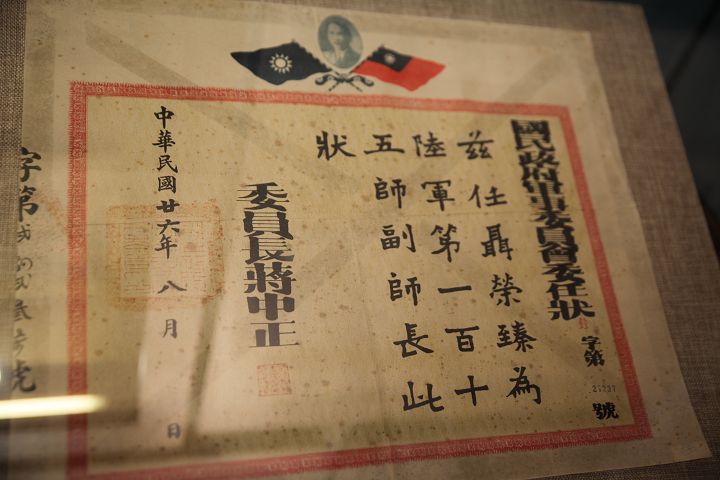 國民政府軍事委員會委任狀
字第
號
茲任聶榮臻為
陸軍第一百十
五師副師長此
狀
委員長蔣中正
中華民國廿六年八月 日
字第 號